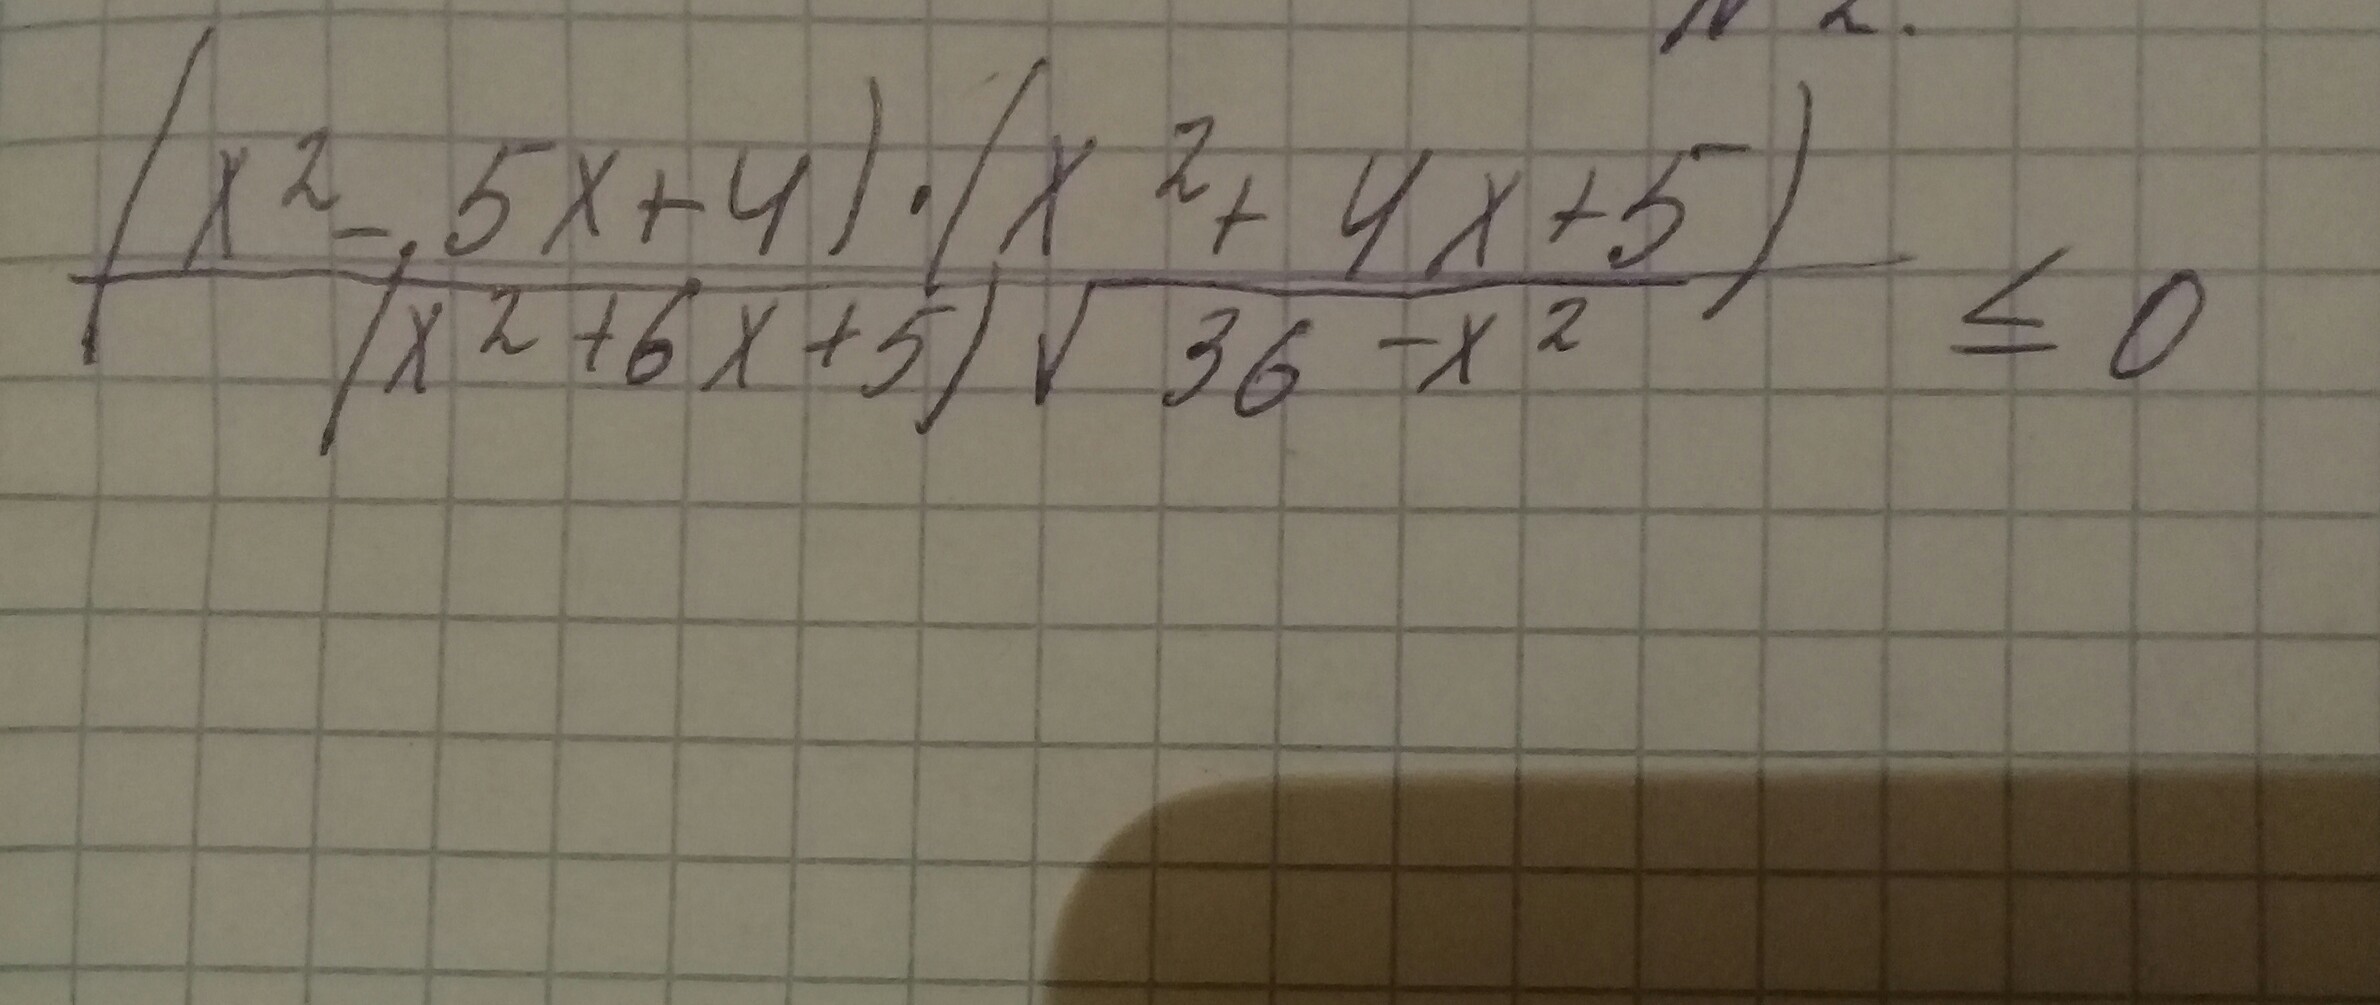 N 2.
(x² - 5x + 4) · (x² + 4x + 5)
(x² + 6x + 5) √36 - x² ≤ 0